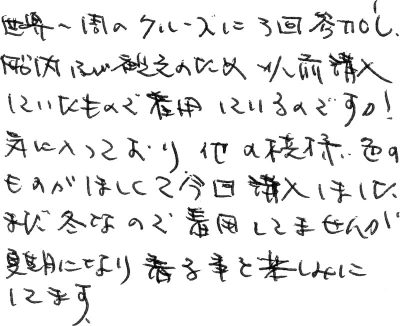 世界一周のクルーズに3回参加し、
船内及び観光のため以前購入
していたもので着用しているのですが!
気に入っており他の模様、色の
ものがほしくて今回購入しました。
まだ冬なので着用してませんが
夏期になり着る事を楽しみに
してます。